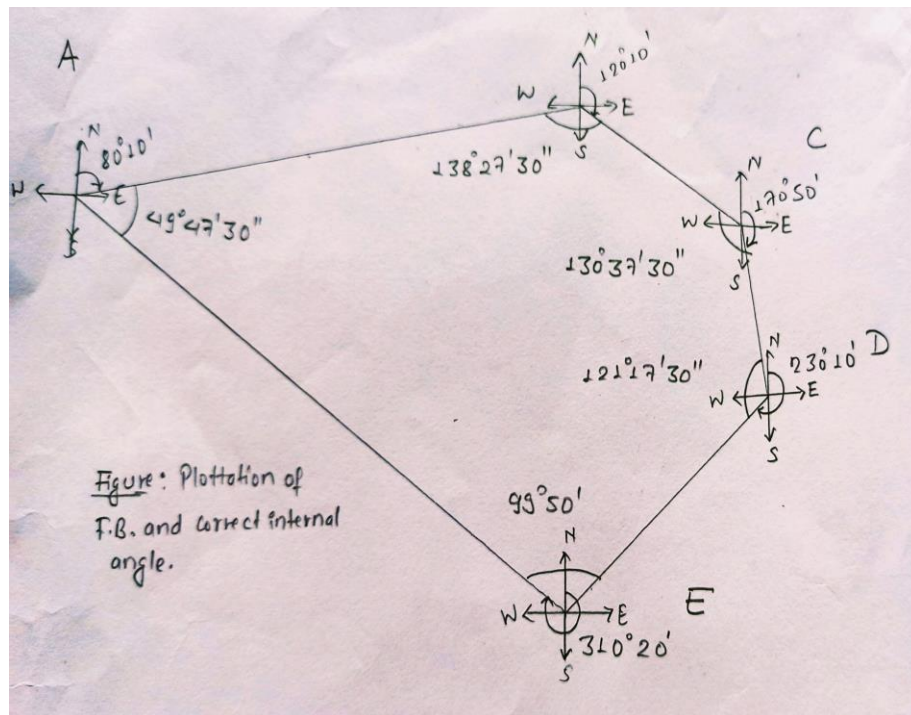 A
N
120°10'
W
E
S
138°27'30"
N
80°10'
W
E
S
49°47'30"
C
N
170°50'
W
E
S
130°37'30"
D
N
230°10'
W
E
S
121°17'30"
99°50'
N
W
E
S
310°20'
E
Figure: Plottation of
F.B. and correct internal
angle.